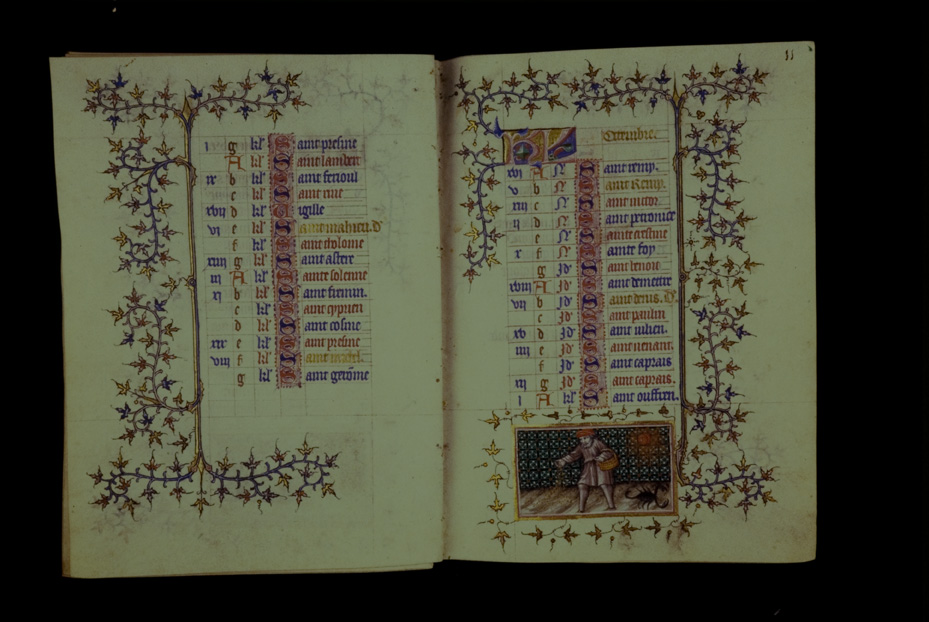 i g kl' S aint presine
A kl' S aint lambert
ix b kl' S aint ferioul
c kl' S aint
xvii d kl' V igille
vi e kl' S aint mahieu. d'
f kl' S aint
xiiii g kl' S aint astere
iii A kl' S ainte solenne
xi b kl' S aint fremin.
c kl' S aint cyprien
d kl' S aint cosme
xix e kl' S aint presine
viii f kl' S aint michel.
g kl' S aint gerõme
ii
KL Octembre
xvi A N' S aint remy.
v b N' S aint Remy.
xiii c N' S aint
ii d N' S aint
e N' S ainte
x f N' S ainte foy
g Id' S aint benoit
xviii A Id' S aint demettre
vii b Id' S aint denis. d'
c Id' S aint paulin
xv d Id' S aint iulien.
iiii e Id' S aint venant
f Id' S aint caprais
xii g Id' S aint caprais.
i A kl' S aint ouffren.